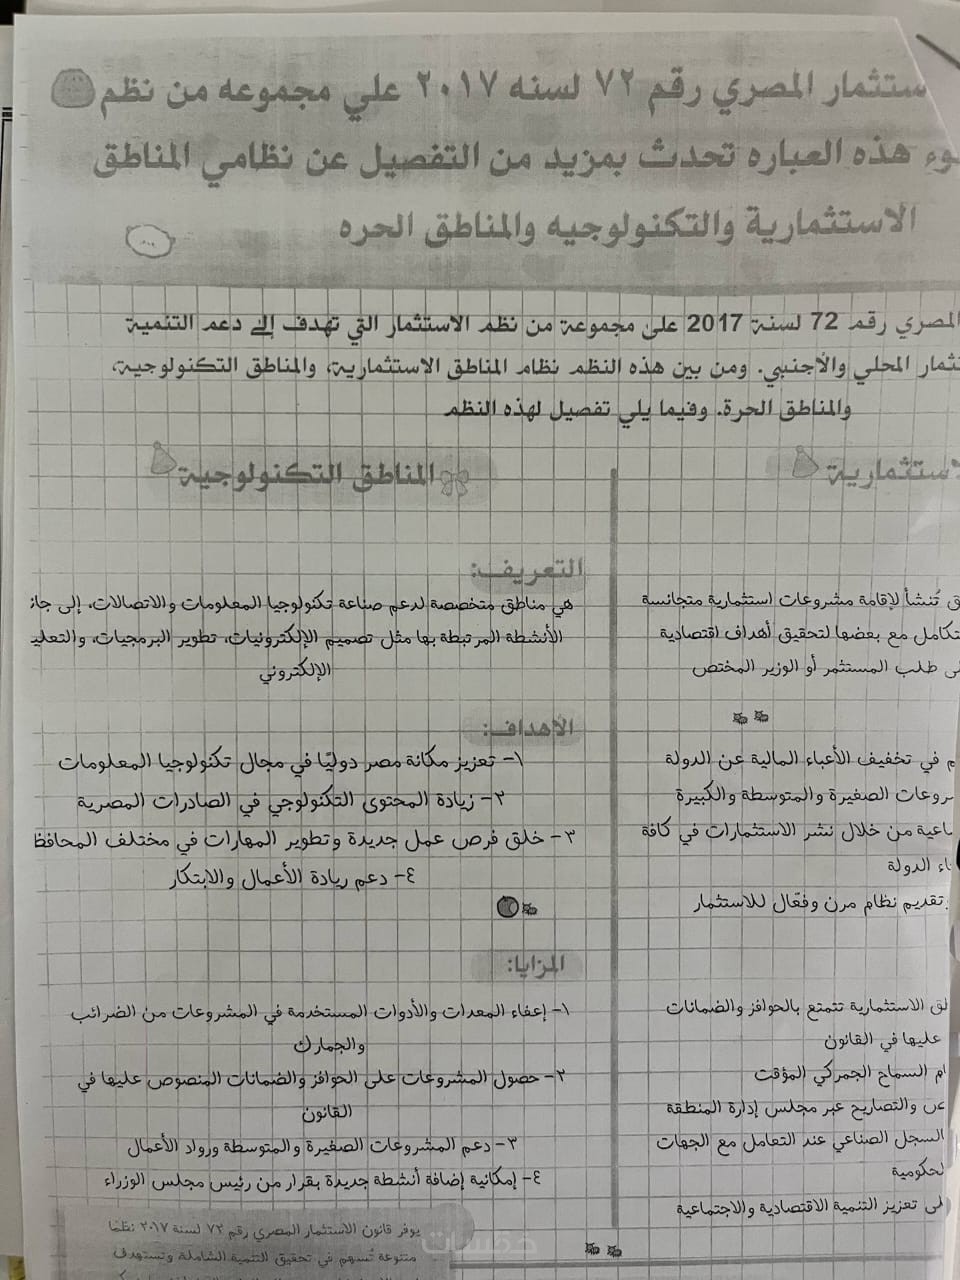 ستثمار المصري رقم ٧٢ لسنه ٢٠١٧ علي مجموعه من نظم
وء هذه العباره تحدث بمزيد من التفصيل عن نظامي المناطق
الاستثمارية والتكنولوجيه والمناطق الحره
المصري رقم 72 لسنة 2017 على مجموعة من نظم الاستثمار التي تهدف إلى دعم التنمية
تثمار المحلي والأجنبي. ومن بين هذه النظم نظام المناطق الاستثمارية، والمناطق التكنولوجية،
والمناطق الحرة. وفيما يلي تفصيل لهذه النظم
لاستثمارية
ق تُنشأ لإقامة مشروعات استثمارية متجانسة
تكامل مع بعضها لتحقيق أهداف اقتصادية
لى طلب المستثمر أو الوزير المختص
م في تخفيف الأعباء المالية عن الدولة
روعات الصغيرة والمتوسطة والكبيرة
ماعية من خلال نشر الاستثمارات في كافة
اء الدولة
تقديم نظام مرن وفعّال للاستثمار
طق الاستثمارية تتمتع بالحوافز والضمانات
عليها في القانون
ام السماح الجمركي المؤقت
ص والتصاريح عبر مجلس إدارة المنطقة
السجل الصناعي عند التعامل مع الجهات
لحكومية
لى تعزيز التنمية الاقتصادية والاجتماعية
المناطق التكنولوجية
التعريف:
هي مناطق متخصصة لدعم صناعة تكنولوجيا المعلومات والاتصالات، إلى جان
الأنشطة المرتبطة بها مثل تصميم الإلكترونيات، تطوير البرمجيات، والتعلي
الإلكتروني
الأهداف:
١- تعزيز مكانة مصر دوليًا في مجال تكنولوجيا المعلومات
٢- زيادة المحتوى التكنولوجي في الصادرات المصرية
٣- خلق فرص عمل جديدة وتطوير المهارات في مختلف المحافظ
٤- دعم ريادة الأعمال والابتكار
المزايا:
١- إعفاء المعدات والأدوات المستخدمة في المشروعات من الضرائب
والجمارك
٢- حصول المشروعات على الحوافز والضمانات المنصوص عليها في
القانون
٣- دعم المشروعات الصغيرة والمتوسطة ورواد الأعمال
٤- إمكانية إضافة أنشطة جديدة بقرار من رئيس مجلس الوزراء
يوفر قانون الاستثمار المصري رقم ٧٢ لسنة ٢٠١٧ نظمًا
متنوعة تُسهم في تحقيق التنمية الشاملة وتستهدف
خمسات